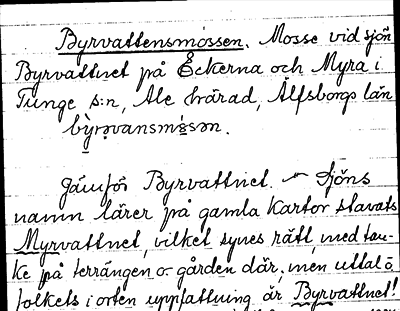 Byrvattensmossen. Mosse vid sjön
Byrvattnet på Eckerna och Myra i
Tunge s:n, Ale härad, Älfsborgs län
byrǝvansmåsǝn.
Jämför Byrvattnet. — Sjöns
namn lärer på gamla kartor stavats
Myrvattnet, vilket synes rätt, med tan-
ke på terrängen o. gården där, men uttal o
folkets i orten uppfattning är Byrvattnet!